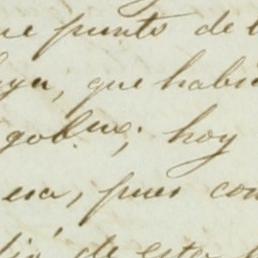 que punto de l
haya, que habia
gob.no; hoy
esa, pues con
dió de esto